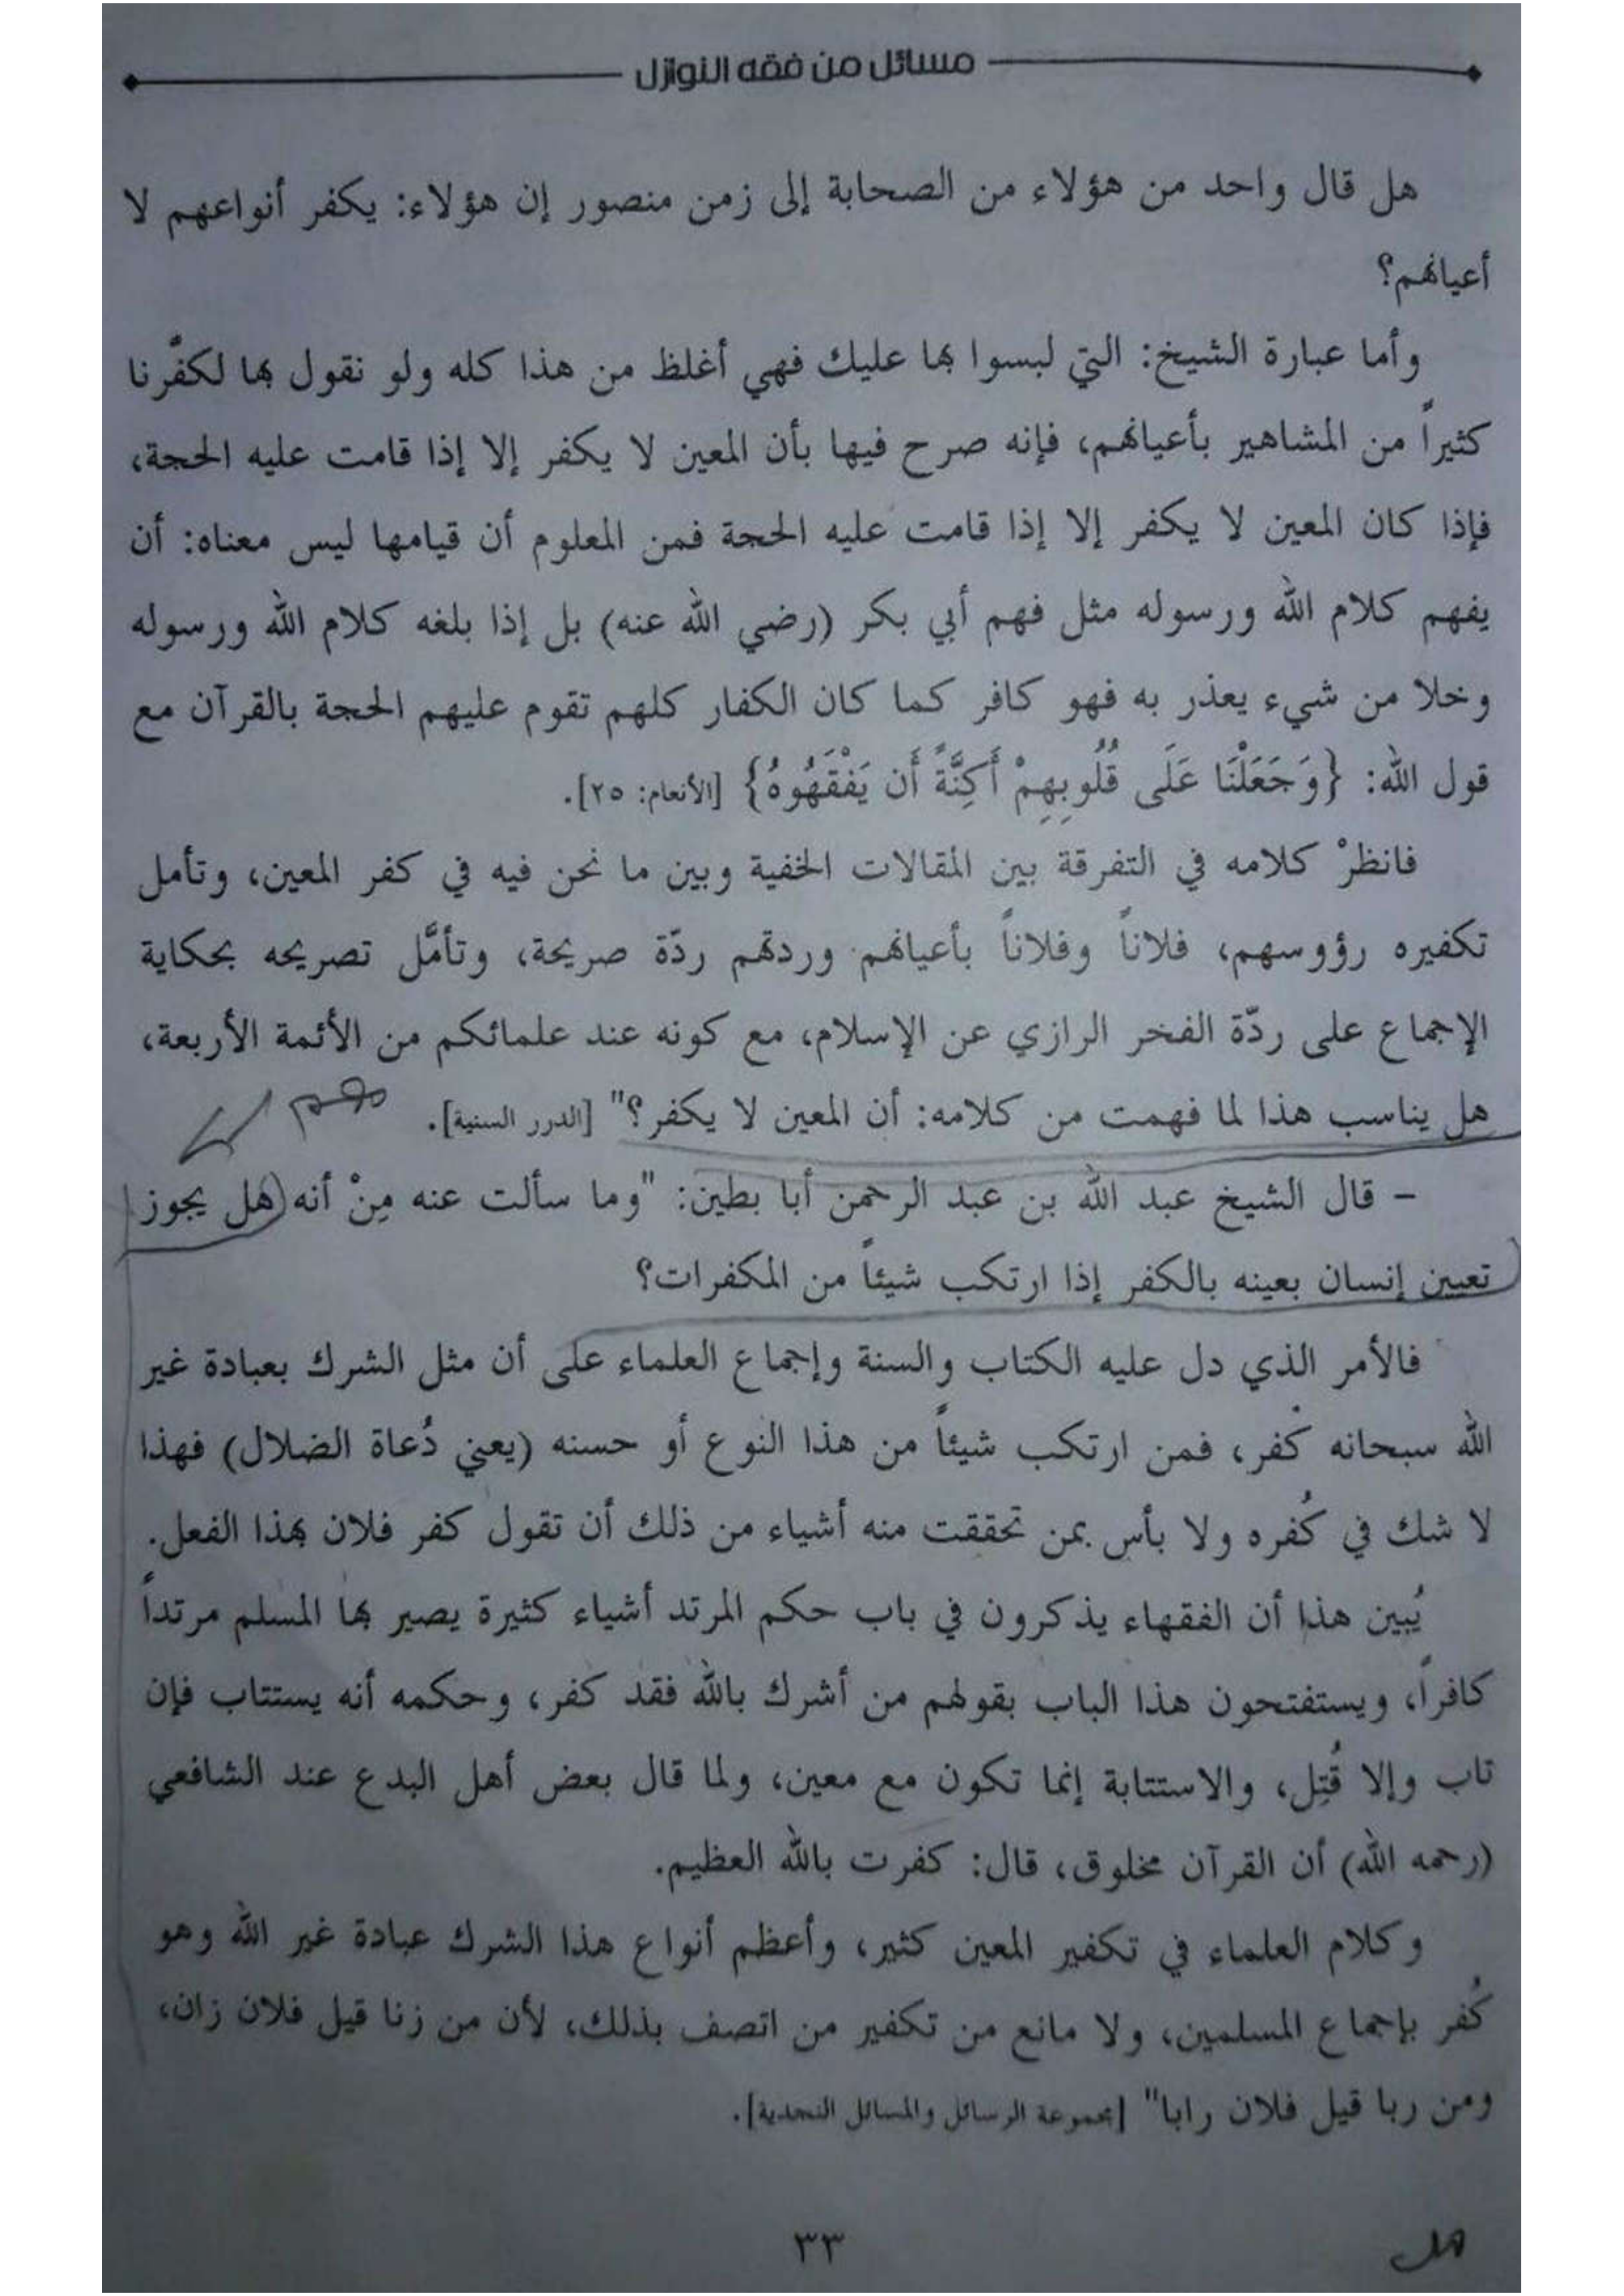 مسائل من فقه النوازل
هل قال واحد من هؤلاء من الصحابة إلى زمن منصور إن هؤلاء: يكفر أنواعهم لا
أعيانهم؟
وأما عبارة الشيخ: التي لبسوا بها عليك فهي أغلظ من هذا كله ولو نقول بها لكفّرنا
كثيراً من المشاهير بأعيانهم، فإنه صرح فيها بأن المعين لا يكفر إلا إذا قامت عليه الحجة،
فإذا كان المعين لا يكفر إلا إذا قامت عليه الحجة فمن المعلوم أن قيامها ليس معناه: أن
يفهم كلام الله ورسوله مثل فهم أبي بكر (رضي الله عنه) بل إذا بلغه كلام الله ورسوله
وخلا من شيء يعذر به فهو كافر كما كان الكفار كلهم تقوم عليهم الحجة بالقرآن مع
قول الله: {وَجَعَلْنَا عَلَى قُلُوبِهِمْ أَكِنَّةً أَن يَفْقَهُوهُ} [الأنعام: ٢٥].
فانظرْ كلامه في التفرقة بين المقالات الخفية وبين ما نحن فيه في كفر المعين، وتأمل
تكفيره رؤوسهم، فلاناً وفلاناً بأعيانهم وردتهم ردّة صريحة، وتأمَّل تصريحه بحكاية
الإجماع على ردّة الفخر الرازي عن الإسلام، مع كونه عند علمائكم من الأئمة الأربعة،
هل يناسب هذا لما فهمت من كلامه: أن المعين لا يكفر؟" [الدرر السنية]. مهم
- قال الشيخ عبد الله بن عبد الرحمن أبا بطين: "وما سألت عنه مِنْ أنه (هل يجوز
تعيين إنسان بعينه بالكفر إذا ارتكب شيئاً من المكفرات؟
فالأمر الذي دل عليه الكتاب والسنة وإجماع العلماء على أن مثل الشرك بعبادة غير
الله سبحانه كُفر، فمن ارتكب شيئاً من هذا النوع أو حسنه (يعني دُعاة الضلال) فهذا
لا شك في كُفره ولا بأس بمن تحققت منه أشياء من ذلك أن تقول كفر فلان بهذا الفعل.
يُبين هذا أن الفقهاء يذكرون في باب حكم المرتد أشياء كثيرة يصير بها المسلم مرتداً
كافراً، ويستفتحون هذا الباب بقولهم من أشرك بالله فقد كفر، وحكمه أنه يستتاب فإن
تاب وإلا قُتِل، والاستتابة إنما تكون مع معين، ولما قال بعض أهل البدع عند الشافعي
(رحمه الله) أن القرآن مخلوق، قال: كفرت بالله العظيم.
وكلام العلماء في تكفير المعين كثير، وأعظم أنواع هذا الشرك عبادة غير الله وهو
كُفر بإجماع المسلمين، ولا مانع من تكفير من اتصف بذلك، لأن من زنا قيل فلان زان،
ومن ربا قيل فلان رابا" [مجموعة الرسائل والمسائل النجدية].
٣٣